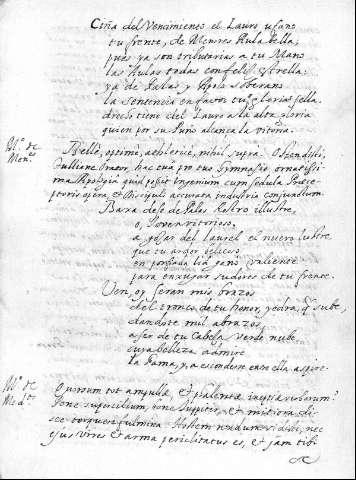 Ciña del Vencimiento el Lauro ufano
tu frente, de Menores Aula bella,
pues ya son tributarias a tu Mano
las Aulas todas con feliz estrella:
ya de Palas, y Apolo soberano
la sentencia en favor tus glorias sella,
drecho tiene del Lauro a la alta gloria
quien por su Puño alcanza la vitoria.
Mo. de
Mens.
Belle, optimè, nihil supra. Ostendisti,
Tulliane Orator, hac tua pro tuo Gymnasio ornatissi-
ma Apologia quid possit Ingenium cum sedula Praece-
ptoris opera, et Discipuli accurata industria conjunctum.
Baxa dese de Palas Rostro illustre,
o, Joven vitorioso,
a gosar del laurel el nuevo lustre
que tu ardor
en porfiada lid ganò valiente
para enxugar sudores de tu frente.
Ven, oy seran mis brazos
del tronco de tu honor, yedra, que sube,
dandote mil abrazos,
a ser de tu Cabesa verde nube
cuya belleza admire
la Fama, y, a esconderse en ella aspire.
Mo. de
Quorsum tot ampullae, et ineptiae verborum?
Pone supercilium, pone Juppiter, et mitiora di-
sce torquere fulmina. Hostem nondum vidisti, nec
ejus vires et arma periclitatus es, et jam tibi